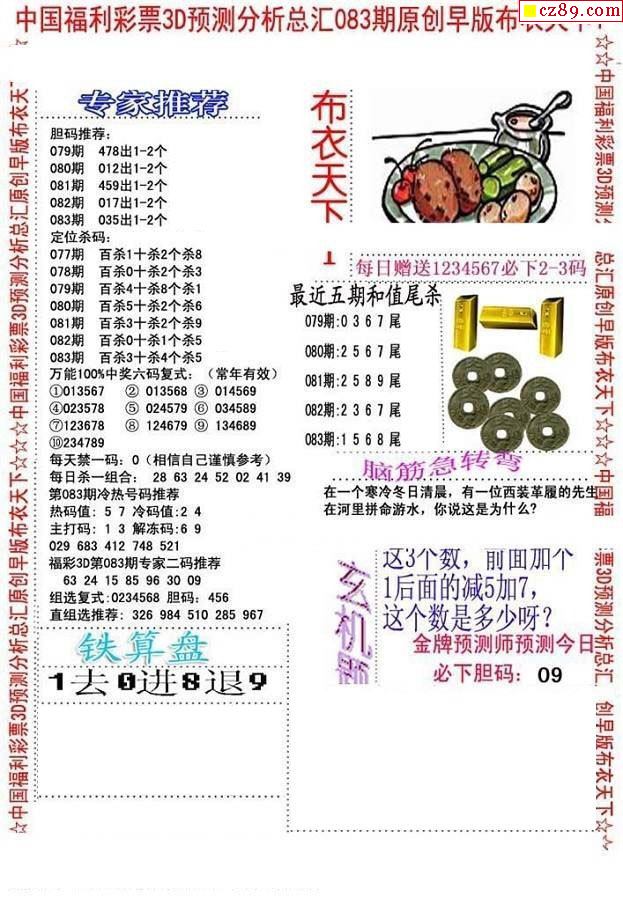 中国福利彩票3D预测分析总汇083期原创早版布衣天下
cz89.com
☆中国福利彩票3D预测分析总汇原创早版布衣天下☆☆☆中国福利彩票3D预测分析总汇原创早版布衣天下
专家推荐
胆码推荐:
079期 478出1-2个
080期 012出1-2个
081期 459出1-2个
082期 017出1-2个
083期 035出1-2个
定位杀码:
077期 百杀1十杀2个杀8
078期 百杀0十杀2个杀3
079期 百杀4十杀8个杀1
080期 百杀5十杀2个杀6
081期 百杀3十杀2个杀9
082期 百杀0十杀1个杀5
083期 百杀3十杀4个杀5
万能100%中奖六码复式: (常年有效)
①013567 ② 013568 ③ 014569
④023578 ⑤ 024579 ⑥ 034589
⑦123678 ⑧ 124679 ⑨ 134689
⑩234789
每天禁一码: 0 (相信自己谨慎参考)
每日杀一组合: 28 63 24 52 02 41 39
第083期冷热号码推荐
热码值: 5 7 冷码值:2 4
主打码: 1 3 解冻码:6 9
029 683 412 748 521
福彩3D第083期专家二码推荐
63 24 15 85 96 30 09
组选复式:0234568 胆码: 456
直组选推荐: 326 984 510 285 967
铁算盘
1去0进8退9
布衣天下
每日赠送1234567必下2-3码
最近五期和值尾杀
079期:0 3 6 7 尾
080期:2 5 6 7 尾
081期:2 5 8 9 尾
082期:2 3 6 7 尾
083期:1 5 6 8 尾
脑筋急转弯
在一个寒冷冬日清晨, 有一位西装革履的先生
在河里拼命游水, 你说这是为什么?
玄机
这3个数, 前面加个
1后面的减5加7,
这个数是多少呀?
金牌预测师预测今日
必下胆码: 09
☆☆中国福利彩票3D预测分
总汇原创早版布衣天下☆☆☆中国福
票3D预测分析总汇
创早版布衣天下☆☆